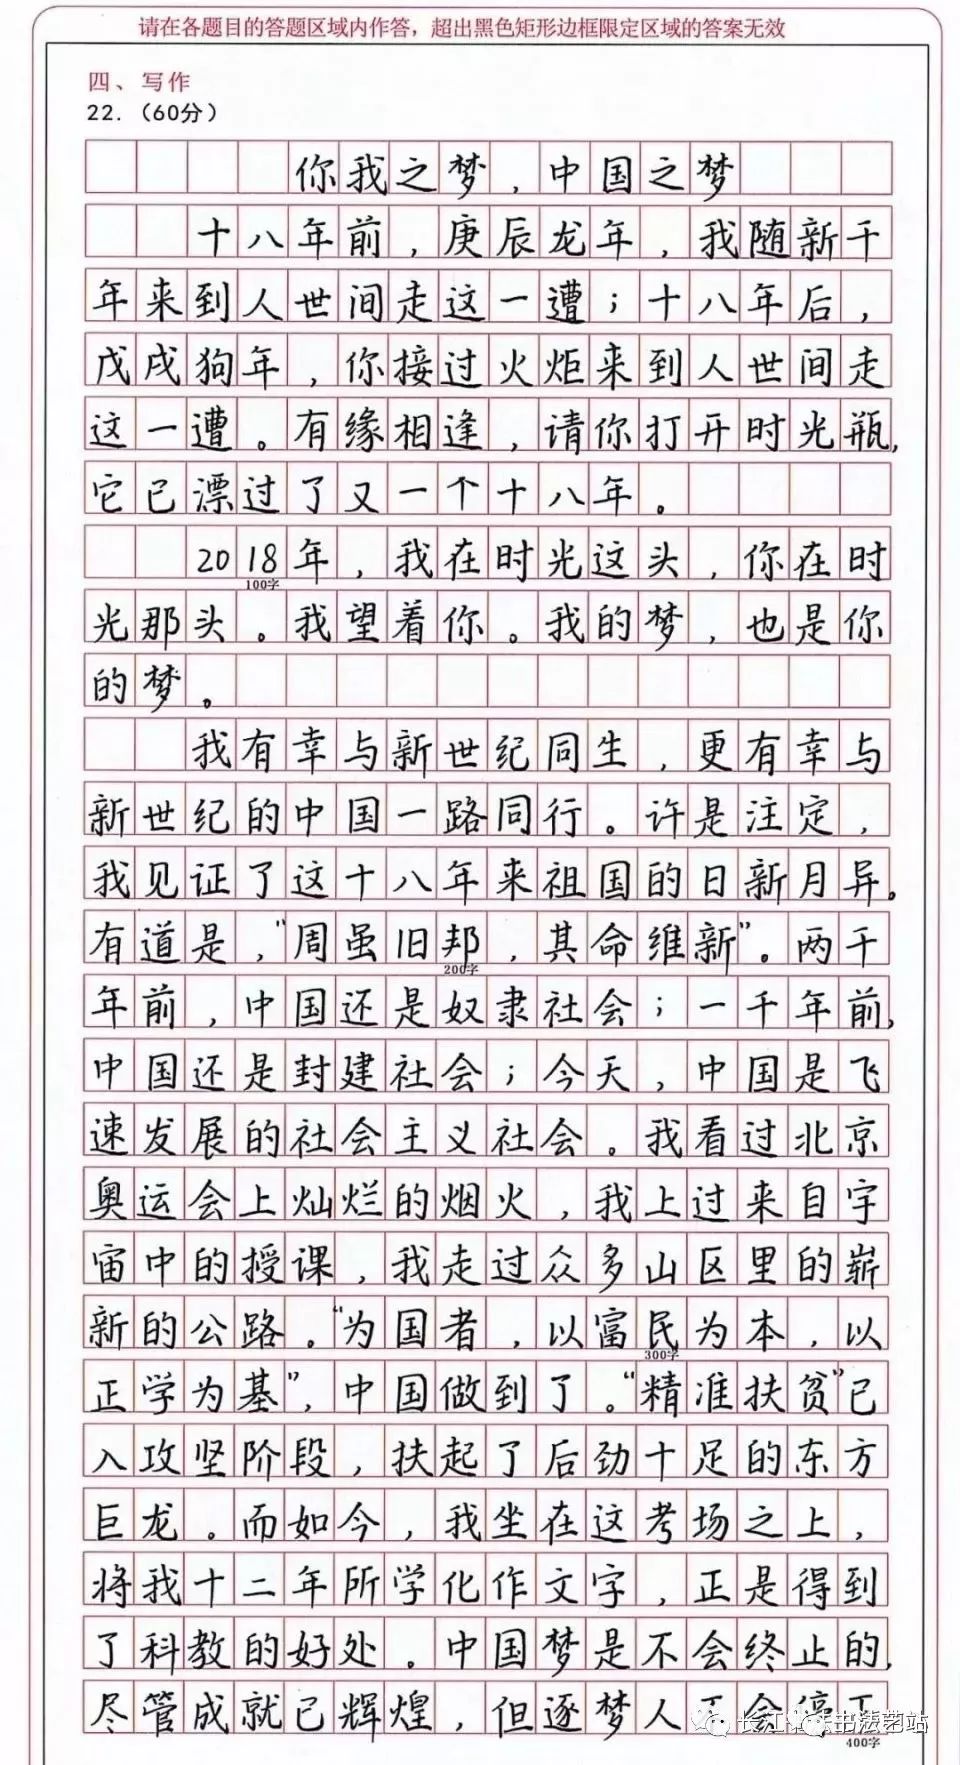 请在各题目的答题区域内作答，超出黑色矩形边框限定区域的答案无效
四、写作
22.（60分）
你我之梦，中国之梦
十八年前，庚辰龙年，我随新千
年来到人世间走这一遭；十八年后，
戊戌狗年，你接过火炬来到人世间走
这一遭。有缘相逢，请你打开时光瓶，
它已漂过了又一个十八年。
2018年，我在时光这头，你在时
100字
光那头。我望着你。我的梦，也是你
的梦。
我有幸与新世纪同生，更有幸与
新世纪的中国一路同行。许是注定，
我见证了这十八年来祖国的日新月异。
有道是，“周虽旧邦，其命维新”。两千
200字
年前，中国还是奴隶社会；一千年前，
中国还是封建社会；今天，中国是飞
速发展的社会主义社会。我看过北京
奥运会上灿烂的烟火，我上过来自宇
宙中的授课，我走过众多山区里的崭
新的公路。“为国者，以富民为本，以
300字
正学为基”，中国做到了。“精准扶贫”已
入攻坚阶段，扶起了后劲十足的东方
巨龙。而如今，我坐在这考场之上，
将我十二年所学化作文字，正是得到
了科教的好处。中国梦是不会终止的，
尽管成就已辉煌，但逐梦人不会停下
400字
长江书法艺站